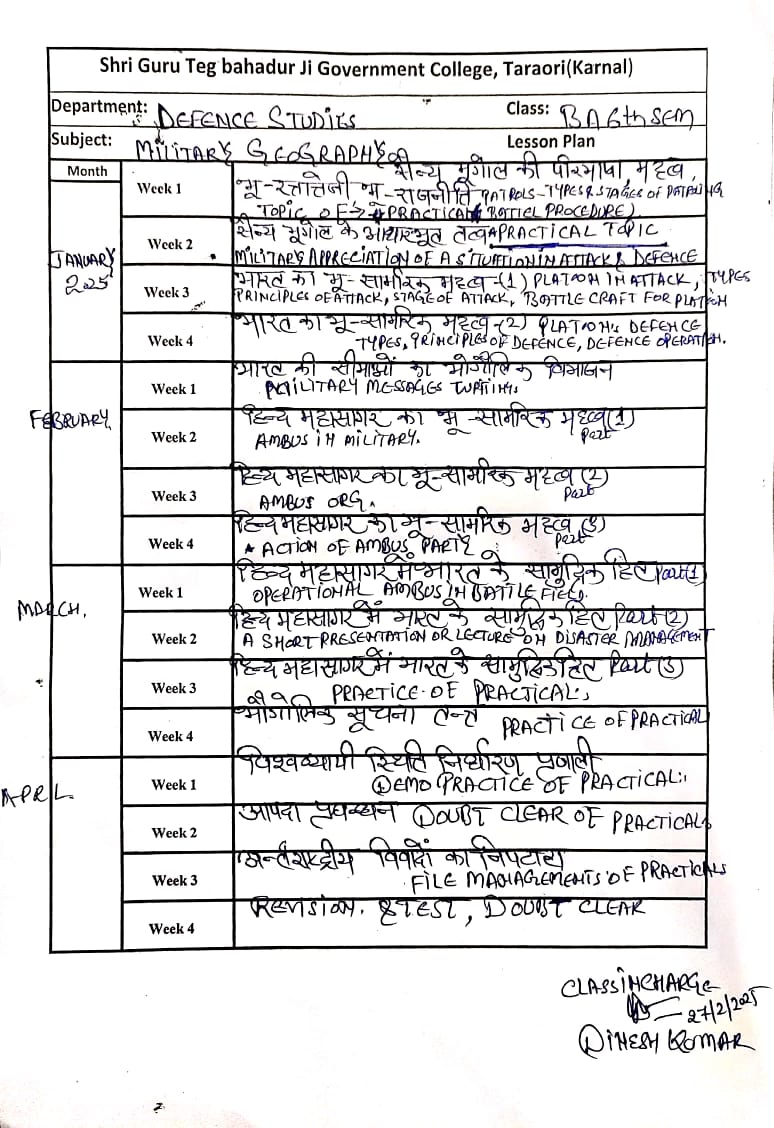 Shri Guru Teg bahadur Ji Government College, Taraori(Karnal)
Department: DEFENCE STUDIES Class: BA6thSEM
Subject: MILITARY GEOGRAPHY Lesson Plan
Month
JANUARY 2025
Week 1
सैन्य भूगोल की परिभाषा, महत्व,
भू-स्त्रातेजी, भू-राजनीति PATROLS-TYPES & STAGES OF PATROLING
TOPIC OF PRACTICAL (BATTEL PROCEDURE)
Week 2
सैन्य भूगोल के आधारभूत तत्व PRACTICAL TOPIC
MILITARY APPRECIATION OF A SITUATION IN ATTACK & DEFENCE
Week 3
भारत का भू-सामरिक महत्व-(1) PLATOON IN ATTACK, TYPES
PRINCIPLES OF ATTACK, STAGE OF ATTACK, BATTLE CRAFT FOR PLATOON
Week 4
भारत का भू-सामरिक महत्व-(2) PLATOON'S DEFENCE
TYPES, PRINCIPLES OF DEFENCE, DEFENCE OPERATION.
FEBRUARY
Week 1
भारत की सीमाओं का भौगोलिक विभाजन
MILITARY MESSAGES
Week 2
हिन्द महासागर का भू-सामरिक महत्व (1) Part
AMBUS IN MILITARY.
Week 3
हिन्द महासागर का भू-सामरिक महत्व (2) Part
AMBUS ORG.
Week 4
हिन्द महासागर का भू-सामरिक महत्व (3) Part
ACTION OF AMBUS PARTY
MARCH.
Week 1
हिन्द महासागर में भारत के सामुद्रिक हित Part(1)
OPERATIONAL AMBUS IN BATTLE FIELD.
Week 2
हिन्द महासागर में भारत के सामुद्रिक हित Part(2)
A SHORT PRESENTATION OR LECTURE ON DISASTER MANAGEMENT
Week 3
हिन्द महासागर में भारत के सामुद्रिक हित Part(3)
PRACTICE OF PRACTICAL
Week 4
भौगोलिक सूचना तन्त्र PRACTICE OF PRACTICAL
APRIL
Week 1
विश्वव्यापी स्थिति निर्धारण प्रणाली
DEMO PRACTICE OF PRACTICAL
Week 2
आपदा प्रबन्धन DOUBT CLEAR OF PRACTICALS
Week 3
अन्तर्राष्ट्रीय विवादों का निपटारा
FILE MANAGEMENTS OF PRACTICALS
Week 4
REVISION. & TEST, DOUBT CLEAR
CLASSINCHARGE
27/2/2025
DINESH KUMAR